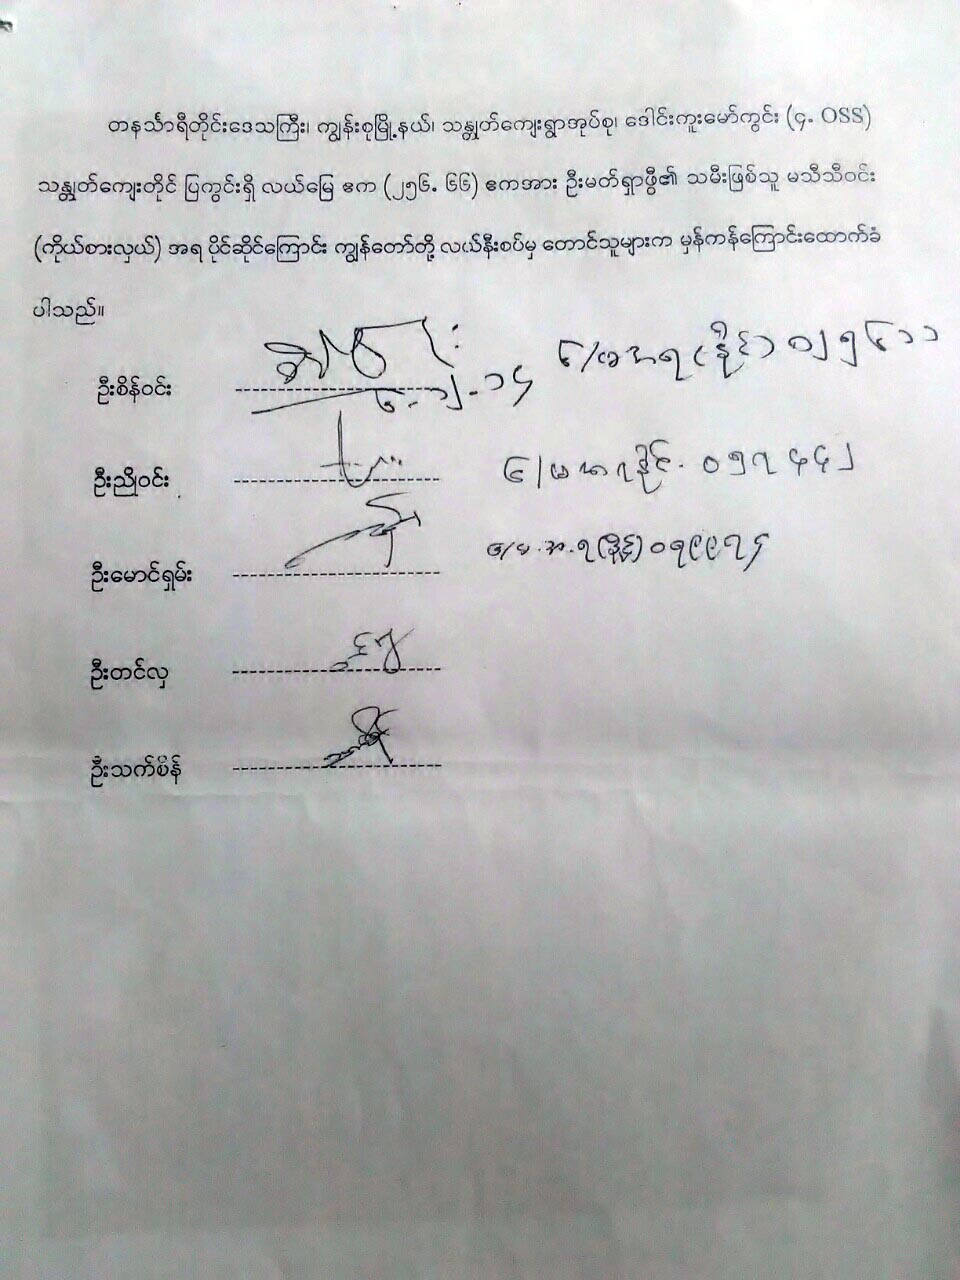 တနင်္သာရီတိုင်းဒေသကြီး၊ ကျွန်းစုမြို့နယ်၊ သန္တွတ်ကျေးရွာအုပ်စု၊ ဒေါင်းကူးမော်ကွင်း (၄. OSS)
သန္တွတ်ကျေးတိုင် ပြကွင်းရှိ လယ်မြေ ဧက (၂၅၆. ၆၆) ဧကအား ဦးမတ်ရှာဖွီ၏ သမီးဖြစ်သူ မသီသီဝင်း
(ကိုယ်စားလှယ်) အရ ပိုင်ဆိုင်ကြောင်း ကျွန်တော်တို့ လယ်နီးစပ်မှ တောင်သူများက မှန်ကန်ကြောင်းထောက်ခံ
ပါသည်။
ဦးစိန်ဝင်း ၆/မအရ(နိုင်) ၀၂၅၆၁၁
၆.၂.၁၄
ဦးညိုဝင်း ၆/မအရနိုင်. ၀၅၇၄၄၂
ဦးမောင်ရှမ်း ၆/မ.အ.ရ(နိုင်) ၀၅၉၉၇၄
ဦးတင်လှ
ဦးသက်စိန်